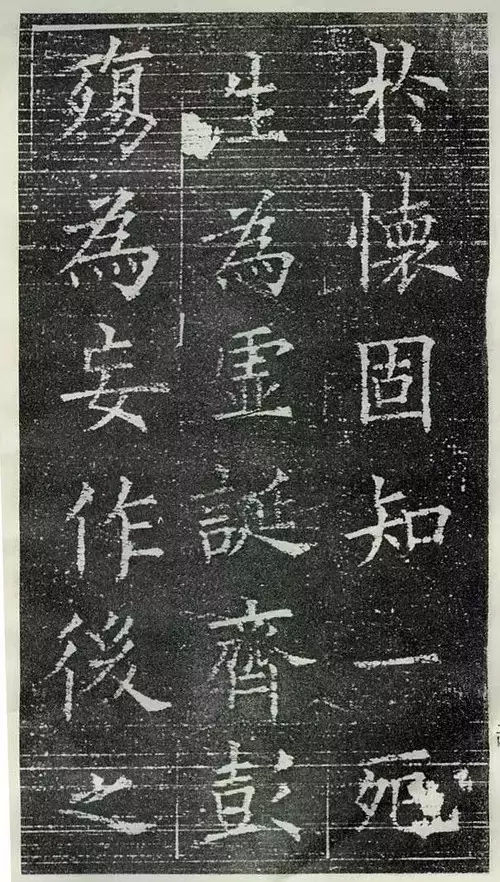 於懷固知一死
生為虛誕齊彭
殤為妄作後之